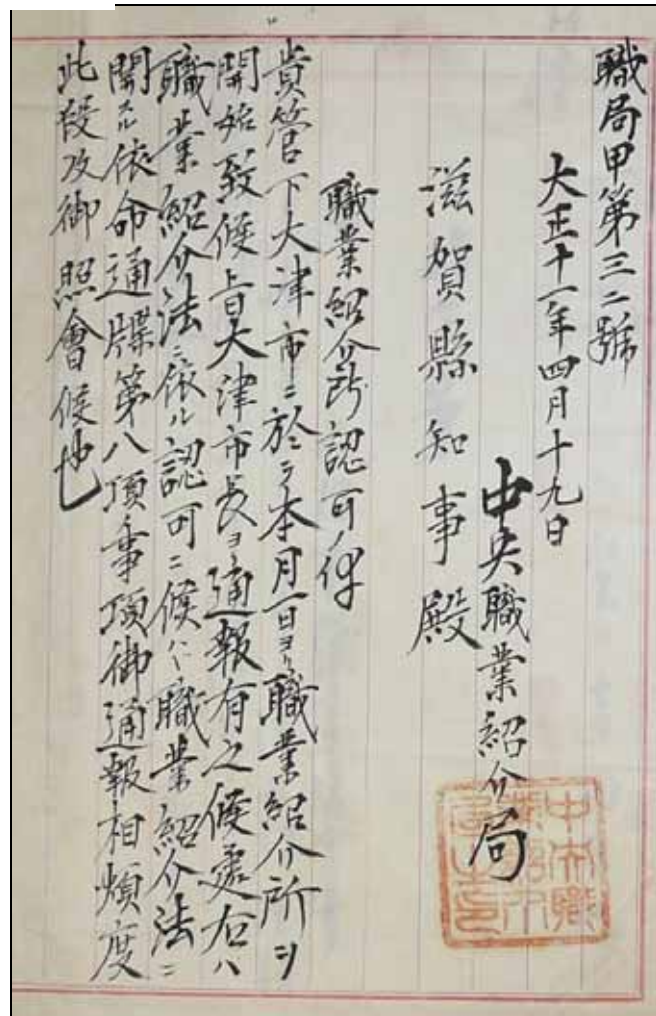 職局甲第三二號
大正十一年四月十九日
中央職業紹介局
滋賀縣知事殿
職業紹介所認可ノ件
貴管下大津市ニ於テ本月一日ヨリ職業紹介所ヲ
開始致候旨大津市長ヨリ通報有之候處右ハ
職業紹介法ニ依ル認可ニ候ハヾ職業紹介法ニ
開スル依命通牒第八項ノ事項御通報相煩度
此段及御照會候也